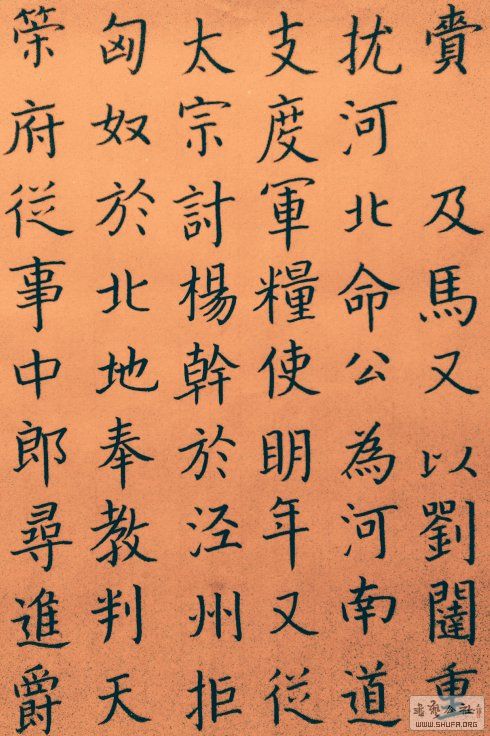 賷及馬又以劉闥重
扰河北命公為河南道
支度軍糧使明年又從
太宗討楊幹於涇州拒
匈奴於北地奉教判天
策府從事中郎尋進爵
WWW.SHUFA.ORG